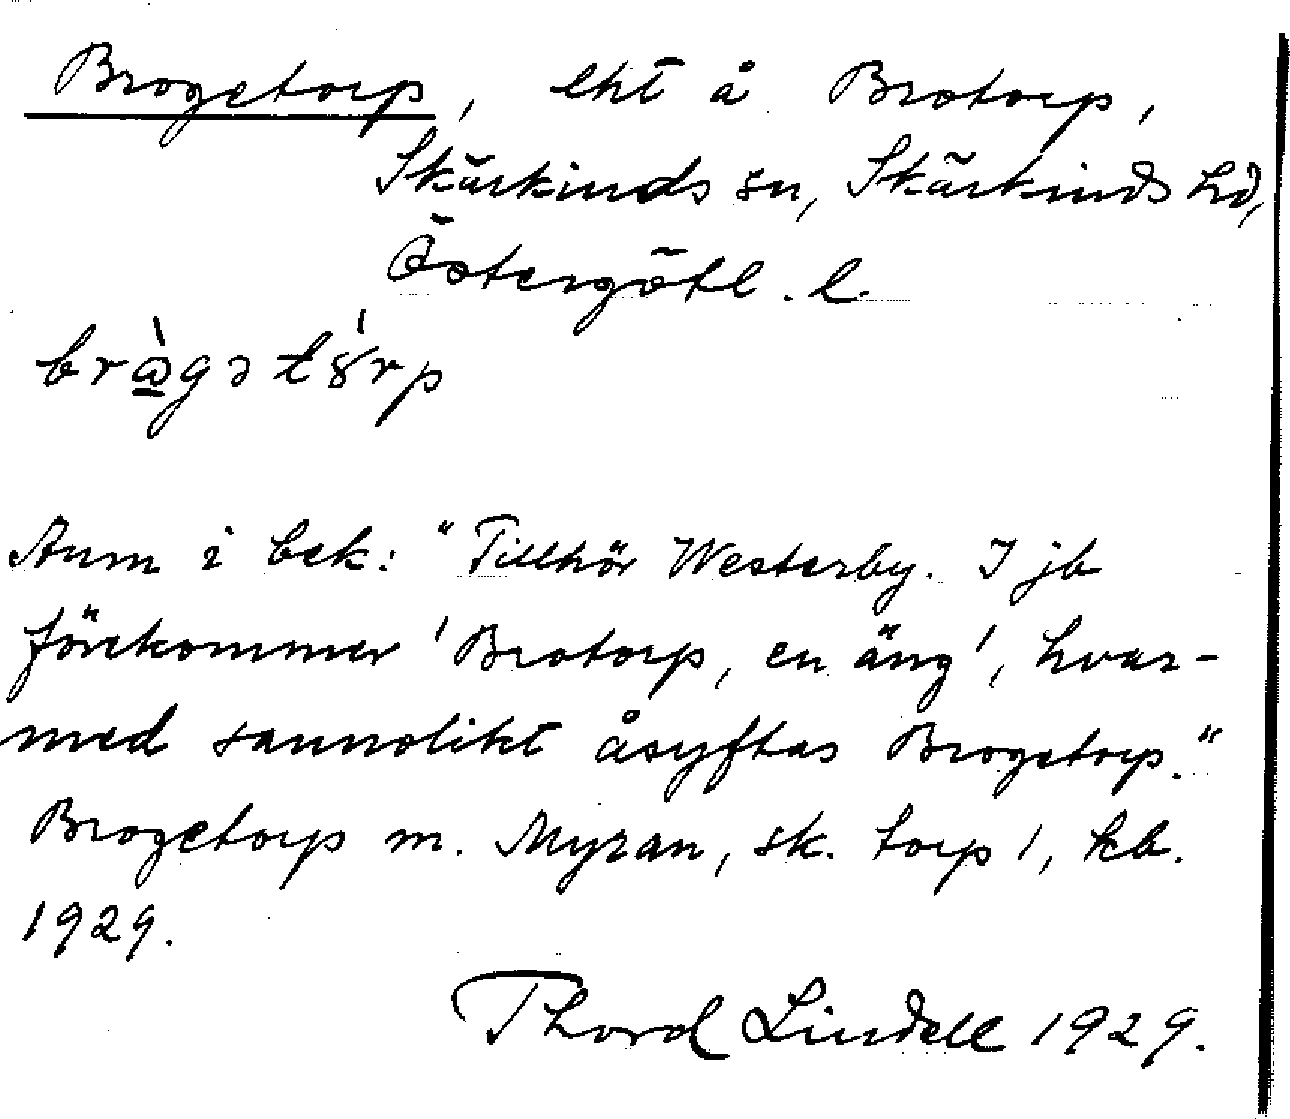 Brogetorp, eht å Brotorp,
Skärkinds sn, Skärkinds hd,
Östergötl. l.
Anm i bek: "Tillhör Westerby. I jb
förekommer 'Brotorp, en äng', hvar-
med sannolikt åsyftas Brogetorp."
Brogetorp m. Myran, sk. torp 1, kb.
1929.
Thord Lindell 1929.